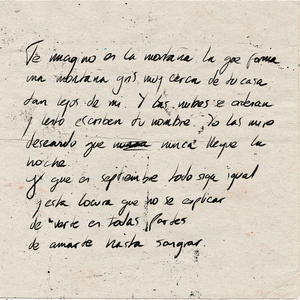 Te imagino en la montaña la que forma
una montaña gris muy cerca de tu casa
tan lejos de mi. Y las nubes se ordenan
y lento escriben tu nombre. Yo las miro
deseando que nunca llegue la
noche
y que en septiembre todo siga igual
y esta locura que no se explicar
de verte en todas partes
de amarte hasta sangrar.